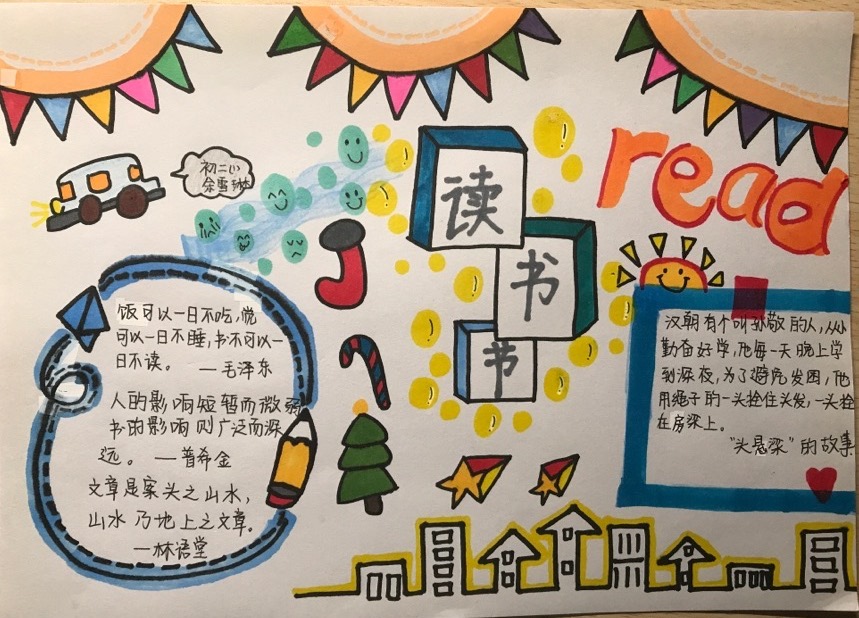 读
书
节
read
初二(1)
余雪琳
饭可以一日不吃,觉
可以一日不睡,书不可以一
日不读。 —毛泽东
人的影响短暂而微弱
书的影响则广泛而深
远。 —普希金
文章是案头之山水,
山水乃地上之文章。
—林语堂
汉朝有个叫孙敬的人,从小
勤奋好学,他每一天晚上学
到深夜,为了避免发困,他
用绳子的一头拴住头发,一头拴
在房梁上。
"头悬梁"的故事